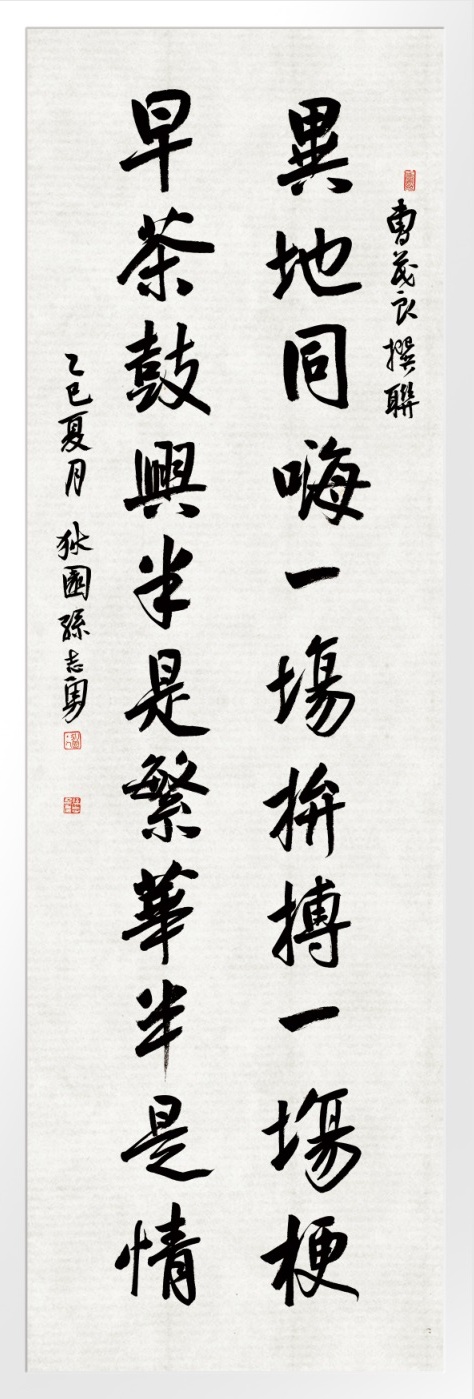 曹茂良撰聯
異地同嗨一場拚搏一場梗
早茶鼓興半是繁華半是情
乙巳夏月 狄園孫志勇